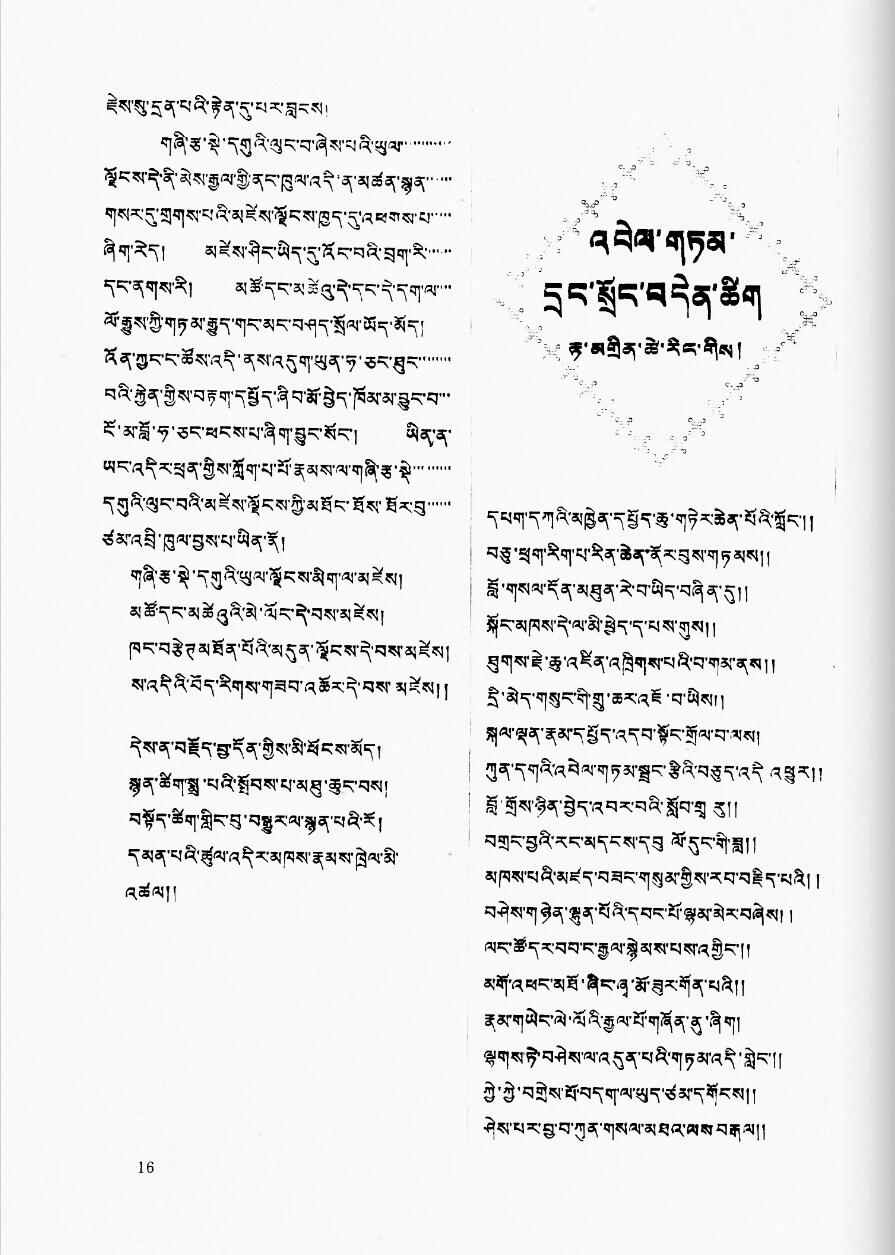 རྗེས་སུ་དྲན་པའི་རྟེན་དུ་པར་བླངས།
གཞི་རྩ་སྡེ་དགུའི་ལུང་བ་ཞེས་པའི་ཡུལ་
ལྗོངས་དེ་ནི་མེས་རྒྱལ་གྱི་ནང་ཁུལ་འདི་ན་མཚན་སྙན་
གསར་དུ་གྲགས་པའི་མཛེས་ལྗོངས་ཁྱད་དུ་འཕགས་པ་
ཞིག་རེད། མཛེས་ཤིང་ཡིད་དུ་འོང་བའི་བྲག་རི་
དང་ནགས་རི། མཚོ་དང་མཚེའུ་དེ་དང་དེ་དག་ལ་
ལོ་རྒྱུས་ཀྱི་གཏམ་རྒྱུད་གང་མང་བཤད་སྲོལ་ཡོད་མོད།
འོན་ཀྱང་ང་ཚོས་འདི་ནས་འདུག་ཡུན་ཧ་ཅང་ཐུང་
བའི་རྐྱེན་གྱིས་བརྟག་དཔྱོད་ཞིབ་མོ་བྱེད་ཁོམ་མ་བྱུང་བ་
ངོ་མ་བློ་ཧ་ཅང་ཕངས་པ་ཞིག་བྱུང་སོང་། ཡིན་ན་
ཡང་འདིར་ཕྲན་གྱིས་ཀློག་པ་པོ་རྣམས་ལ་གཞི་རྩ་སྡེ་
དགུའི་ལུང་བའི་མཛེས་ལྗོངས་ཀྱི་མཐོང་ཐོས་ཐོར་བུ་
ཙམ་འབྲི་ཁུལ་བྱས་པ་ཡིན་ནོ།
གཞི་རྩ་སྡེ་དགུའི་ཡུལ་ལྗོངས་མིག་ལ་མཛེས།
མཚོ་དང་མཚེའུའི་མེ་ལོང་དེ་བས་མཛེས།
ཁང་བརྩེགས་མཐོན་པོའི་མདུན་ལྗོངས་དེ་བས་མཛེས།
ས་འདིའི་བོད་རིགས་གཟབ་འཆོར་དེ་བས་མཛེས།།
དེས་ན་བརྗོད་བྱ་དོན་གྱིས་མི་ཕོངས་མོད།
སྙན་ཚིག་སྨྲ་པའི་སྤོབས་པ་མཐུ་ཆུང་བས།
བསྟོད་ཚིག་གླིང་བུ་བསྒྱུར་ལ་སྙན་པའི་ངོ།
དམན་པའི་ཚུལ་འདིར་མཁས་རྣམས་ཁྲེལ་མི་
འཚལ།།
16
འབེལ་གཏམ་
དྲང་སྲོང་བདེན་ཚིག
རྟ་མགྲིན་ཚེ་རིང་གིས།
དཔག་དཀའི་མཁྱེན་དཔྱོད་ཆུ་གཏེར་ཆེན་པོའི་ཀློང་།།
བཅུ་ཕྲག་རིག་པ་རིན་ཆེན་ནོར་བུས་གཏམས།།
བློ་གསལ་དོན་མཐུན་རེ་བ་ཡིད་བཞིན་དུ།།
སྐོང་མཁས་དེ་ལ་མི་ཕྱེད་དད་པས་གུས།།
ཐུགས་རྗེ་ཆུ་འཛིན་འཁྲིགས་པའི་བ་གམ་ནས།།
དྲི་མེད་གསུང་གི་གྲུ་ཆར་འཇོ་བ་ཡིས།།
སྐལ་ལྡན་རྣམ་དཔྱོད་འདབ་སྟོང་གྲོལ་བ་ལས།
ཀུན་དགའི་འབེལ་གཏམ་སྦྲང་རྩིའི་བཅུད་འདི་འཕྱུར།།
བློ་གྲོས་ཉིན་བྱེད་འབར་བའི་སློབ་གྲྭ་རུ།།
བགྲང་བྱའི་རང་མདངས་དབུ་ལོ་དུང་གི་ཟླ།།
མཁས་པའི་མཛད་བཟང་གསུམ་གྱིས་རབ་བརྗིད་པའི།།
བཤེས་གཉེན་ལྷུན་པོའི་དབང་པོ་ལྷམ་མེར་བཞེས།།
ལང་ཚོ་དར་བབ་ང་རྒྱལ་སྙེམས་པས་འགྱིང་།།
མགོ་འཕང་མཐོ་ཞིང་ཞྭ་མོ་ཟུར་གོན་པའི།།
རྣམ་གཡེང་ལེ་ལོའི་རྒྱལ་པོ་གཞོན་ནུ་ཞིག།
ལྷགས་ཏེ་བཤེས་ལ་འདུན་པའི་གཏམ་འདི་གླེང་།།
ཀྱེ་ཀྱེ་བགྲེས་པོ་བདག་ལ་ཡུད་ཙམ་དགོངས།།
ཤེས་པར་བྱ་བ་ཀུན་གསལ་མཐའ་ལས་བརྒལ།།